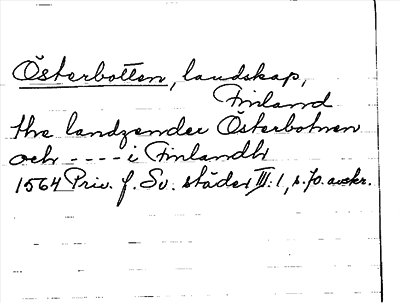 Österbotten, landskap,
Finland
the landzender Österbotnen
och - - - - i Finlandh
1564 Priv. f. Sv. städer III:1, s. 70. avskr.